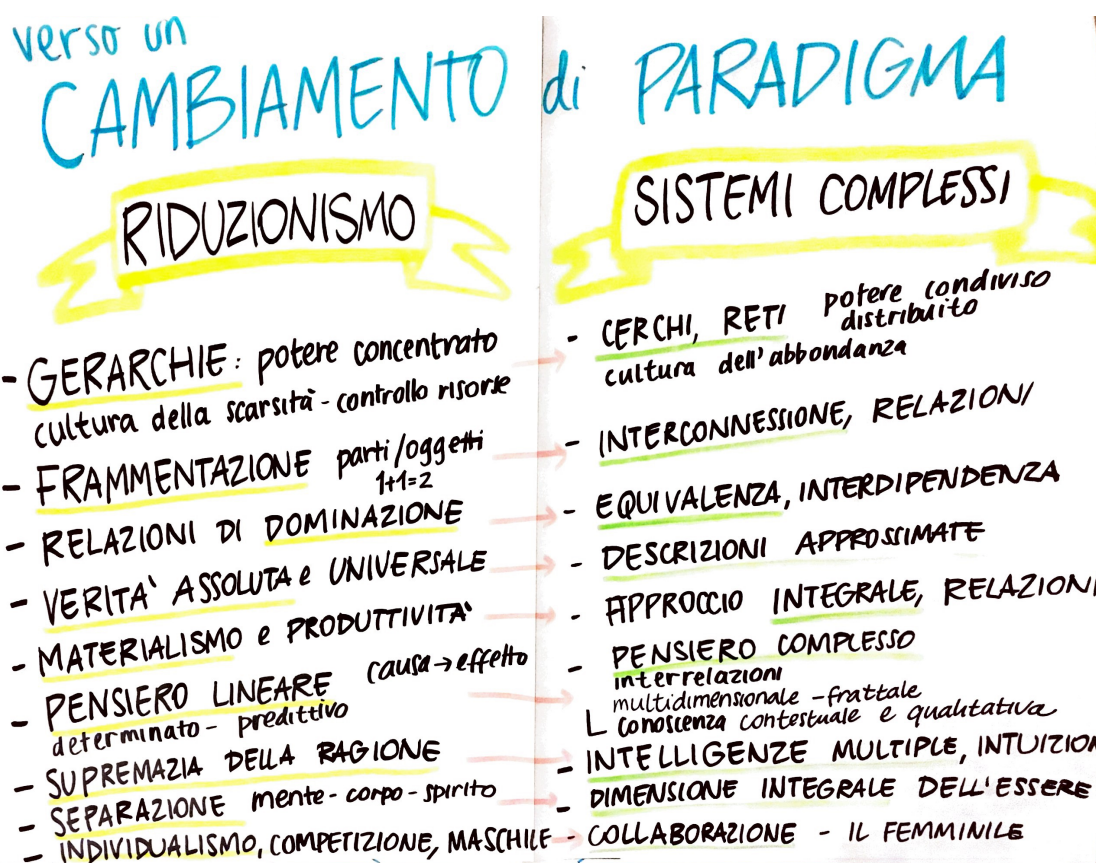 verso un
CAMBIAMENTO di PARADIGMA
RIDUZIONISMO
- GERARCHIE: potere concentrato
cultura della scarsità - controllo risorse
- FRAMMENTAZIONE parti/oggetti
1+1=2
- RELAZIONI DI DOMINAZIONE
- VERITA' ASSOLUTA e UNIVERSALE
- MATERIALISMO e PRODUTTIVITA'
- PENSIERO LINEARE causa→effetto
determinato - predittivo
- SUPREMAZIA DELLA RAGIONE
- SEPARAZIONE mente - corpo - spirito
- INDIVIDUALISMO, COMPETIZIONE, MASCHILE
SISTEMI COMPLESSI
- CERCHI, RETI potere condiviso
distribuito
cultura dell'abbondanza
- INTERCONNESSIONE, RELAZIONI
- EQUIVALENZA, INTERDIPENDENZA
- DESCRIZIONI APPROSSIMATE
- APPROCCIO INTEGRALE, RELAZIONI
- PENSIERO COMPLESSO
interrelazioni
multidimensionale - frattale
L conoscenza contestuale e qualitativa
- INTELLIGENZE MULTIPLE, INTUIZION
- DIMENSIONE INTEGRALE DELL'ESSERE
- COLLABORAZIONE - IL FEMMINILE